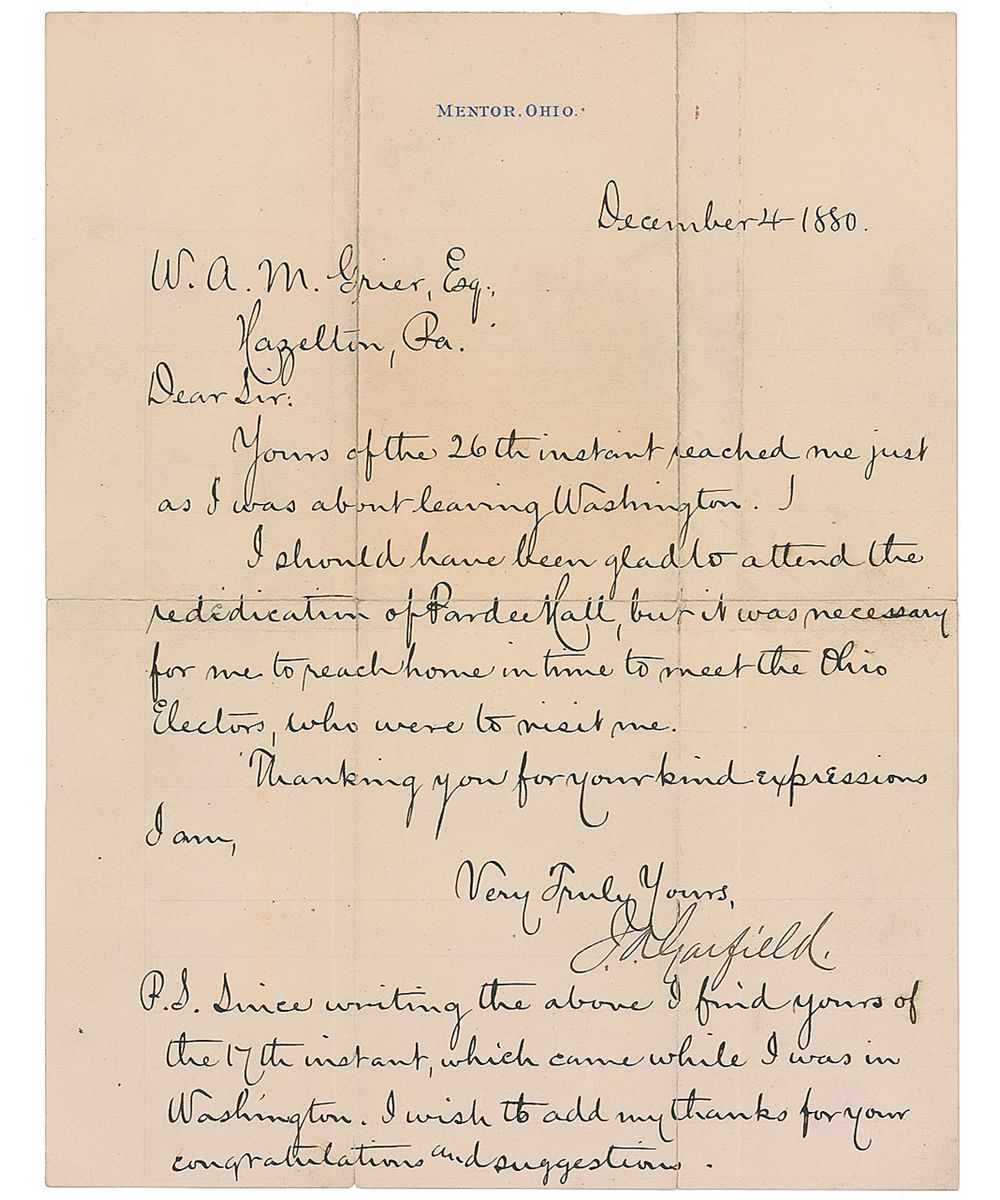 MENTOR, OHIO.
December 4 1880.
W. A. M. Grier, Esq.,
Hazelton, Pa.
Dear Sir:
Yours of the 26th instant reached me just
as I was about leaving Washington.
I should have been glad to attend the
rededication of Pardee Hall, but it was necessary
for me to reach home in time to meet the Ohio
Electors, who were to visit me.
Thanking you for your kind expressions
I am,
Very Truly Yours,
J. A. Garfield.
P.S. Since writing the above I find yours of
the 17th instant, which came while I was in
Washington. I wish to add my thanks for your
congratulations and suggestions.